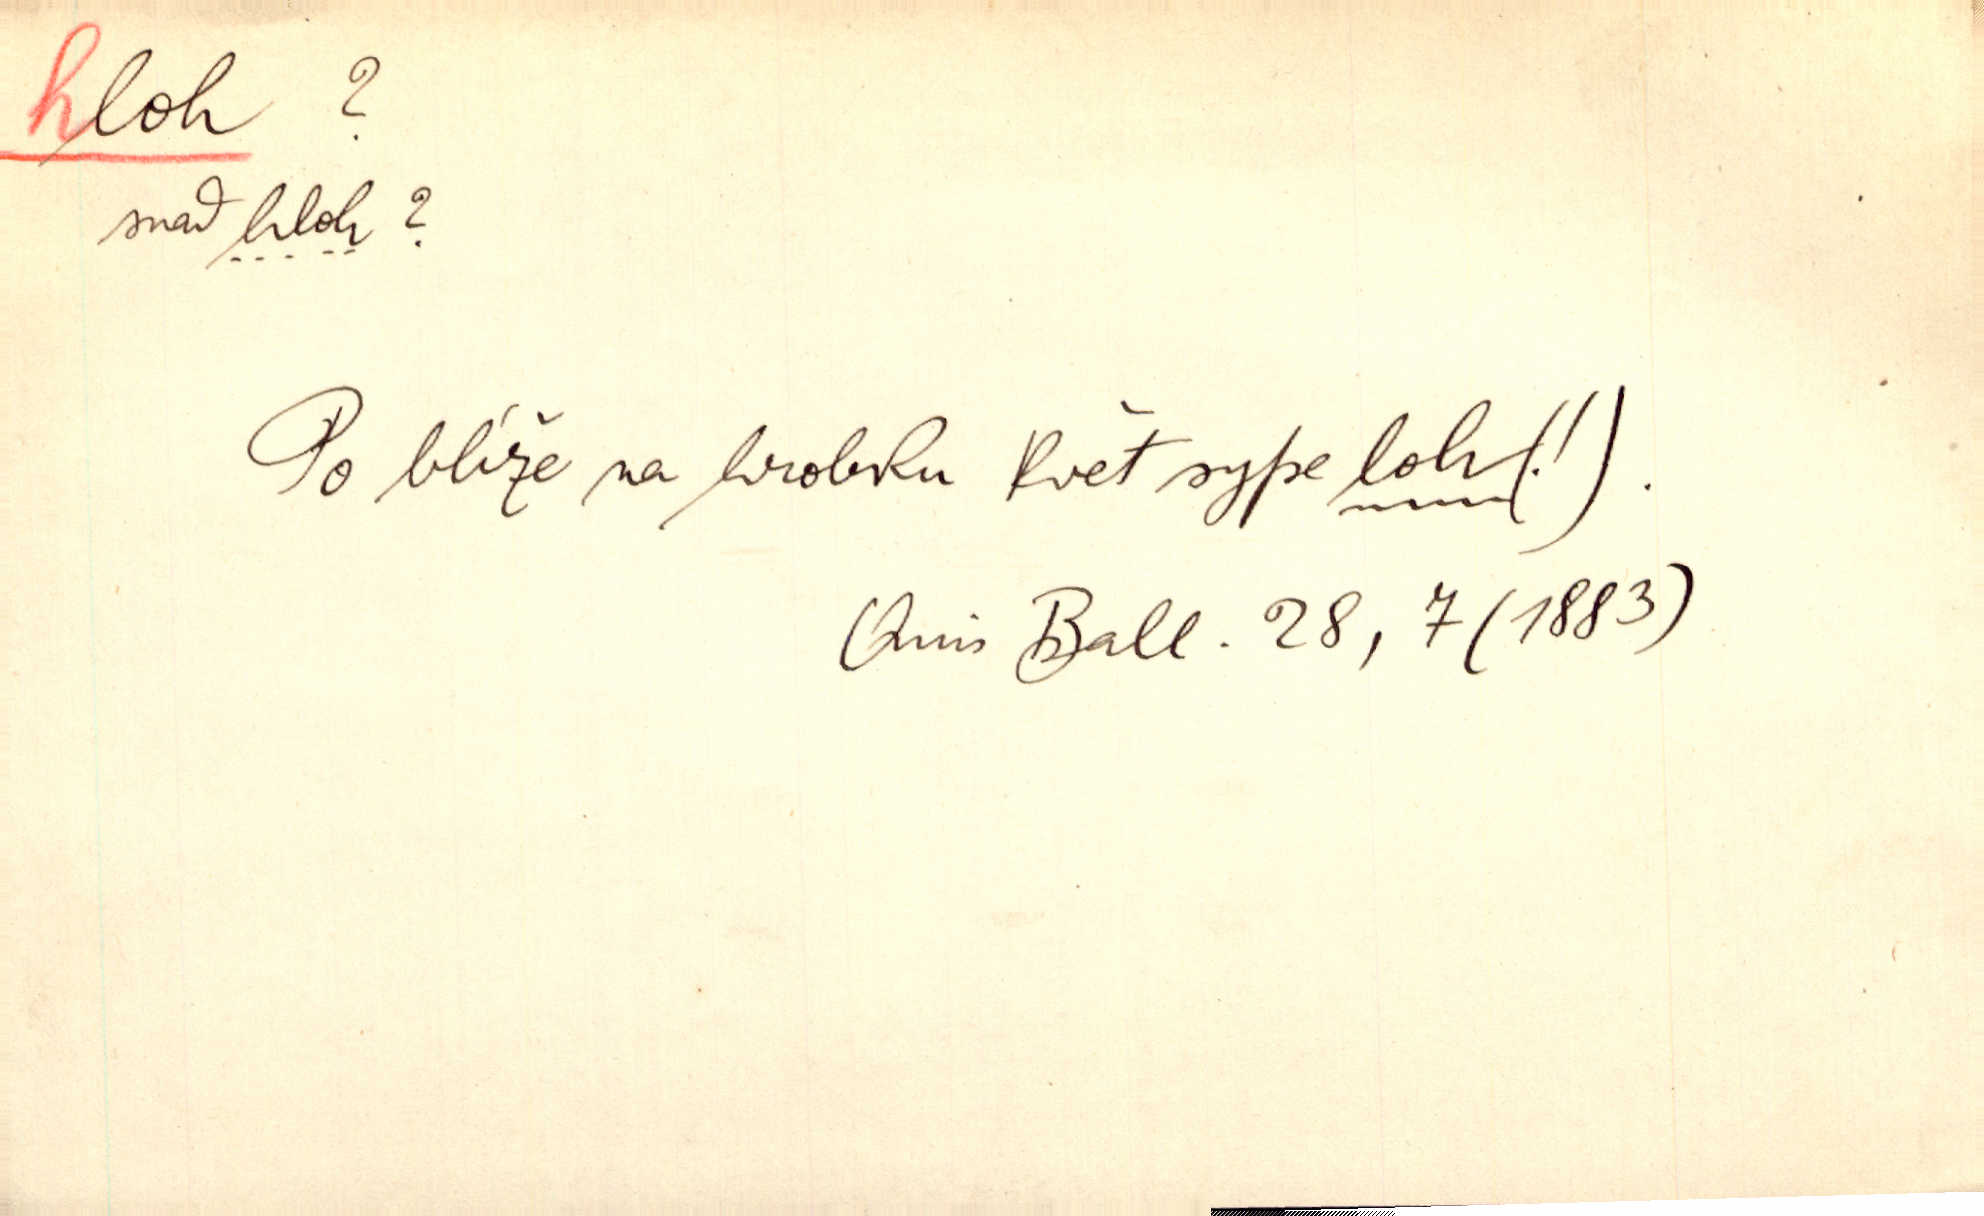 hloh ?
snad hloh ?
Po blíže na hrobku květ sype loh (!) .
Quis Ball. 28, 7 (1883)